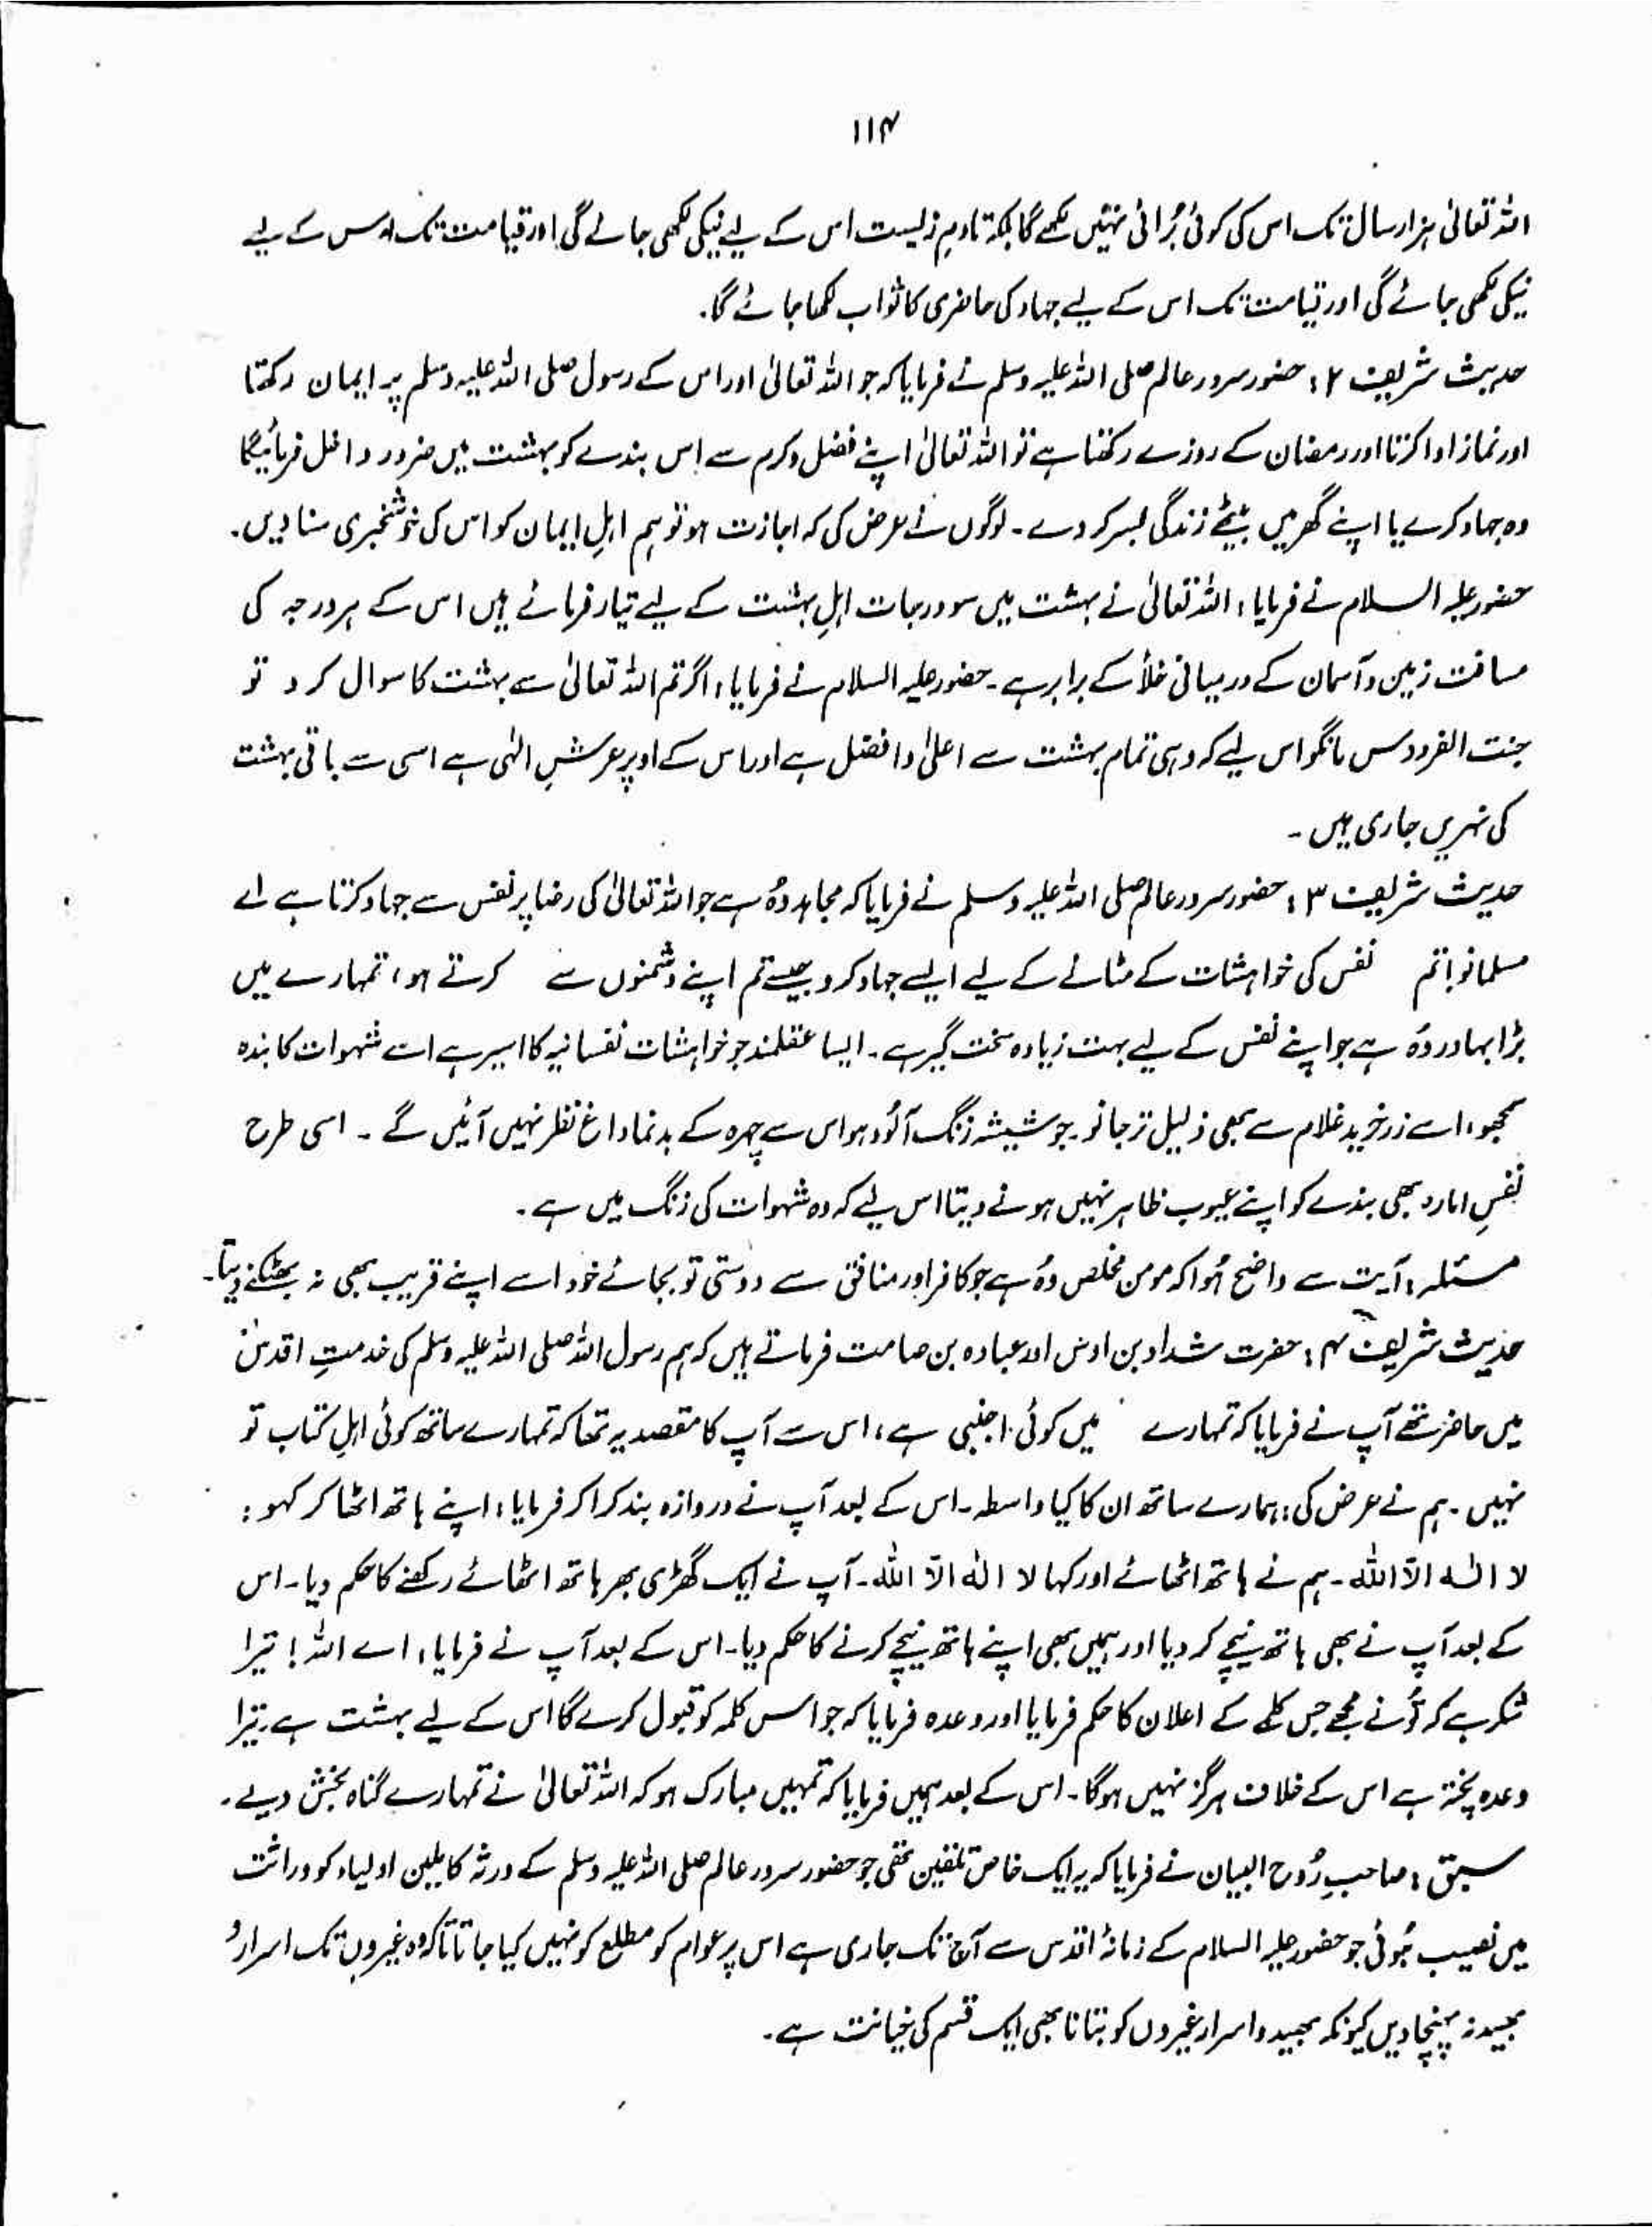 ۱۱۴
اللہ تعالیٰ ہزار سال تک اس کی کوئی بُرائی نہیں لکھے گا بلکہ تادمِ زلیست اس کے لیے نیکی لکھی جائے گی اور قیامت تک اس کے لیے
نیکی لکھی جائے گی اور قیامت تک اس کے لیے جہاد کی حاضری کا ثواب لکھا جائے گا۔
حدیث شریف ۲ : حضور سرور عالم صلی اللہ علیہ وسلم نے فرمایا کہ جو اللہ تعالیٰ اور اس کے رسول صلی اللہ علیہ وسلم پر ایمان رکھتا
اور نماز ادا کرتا اور رمضان کے روزے رکھتا ہے تو اللہ تعالیٰ اپنے فضل و کرم سے اس بندے کو بہشت میں ضرور داخل فرمائیگا
وہ جہاد کرے یا اپنے گھر میں بیٹھے زندگی بسر کر دے ۔ لوگوں نے عرض کی کہ اجازت ہو تو ہم اہلِ ایمان کو اس کی خوشخبری سنا دیں۔
حضور علیہ السلام نے فرمایا ؛ اللہ تعالیٰ نے بہشت میں سو درجات اہلِ بہشت کے لیے تیار فرمائے ہیں اس کے ہر درجہ کی
مسافت زمین و آسمان کے درمیانی خلأ کے برابر ہے ۔ حضور علیہ السلام نے فرمایا ؛ اگر تم اللہ تعالیٰ سے بہشت کا سوال کرو تو
جنت الفردوس مانگو اس لیے کہ وہی تمام بہشت سے اعلیٰ و افضل ہے اور اس کے اوپر عرشِ الٰہی ہے اسی سے باقی بہشت
کی نہریں جاری ہیں ۔
حدیث شریف ۳ : حضور سرور عالم صلی اللہ علیہ وسلم نے فرمایا کہ مجاہد وُہ ہے جو اللہ تعالیٰ کی رضا پر نفس سے جہاد کرتا ہے اے
مسلمانو! تم نفس کی خواہشات کے مٹانے کے لیے ایسے جہاد کرو جیسے تم اپنے دشمنوں سے کرتے ہو ، تمہارے میں
بڑا بہادر وُہ ہے جو اپنے نفس کے لیے بہت زیادہ سخت گیر ہے ۔ ایسا عقلمند جو خواہشات نفسانیہ کا اسیر ہے اسے شہوات کا بندہ
سمجھو ، اسے زر خرید غلام سے بھی ذلیل تر جانو ۔ جو شیشہ زنگ آلُود ہو اس سے چہرہ کے بدنما داغ نظر نہیں آئیں گے ۔ اسی طرح
نفسِ امارہ بھی بندے کو اپنے عیوب ظاہر نہیں ہونے دیتا اس لیے کہ وہ شہوات کی زنگ میں ہے ۔
مسئلہ : آیت سے واضح ہُوا کہ مومن مخلص وُہ ہے جو کافر اور منافق سے دوستی تو بجائے خود اسے اپنے قریب بھی نہ بھٹکنے دیتا۔
حدیث شریف ۴ : حضرت شداد بن اوس اور عبادہ بن صامت فرماتے ہیں کہ ہم رسول اللہ صلی اللہ علیہ وسلم کی خدمتِ اقدس
میں حاضر تھے آپ نے فرمایا کہ تمہارے میں کوئی اجنبی ہے ؛ اس سے آپ کا مقصد یہ تھا کہ تمہارے ساتھ کوئی اہلِ کتاب تو
نہیں ۔ ہم نے عرض کی : ہمارے ساتھ ان کا کیا واسطہ ۔ اس کے بعد آپ نے دروازہ بند کرا کر فرمایا ؛ اپنے ہاتھ اٹھا کر کہو :
لا الٰہ الّا اللہ ۔ ہم نے ہاتھ اٹھائے اور کہا لا الٰہ الّا اللہ ۔ آپ نے ایک گھڑی بھر ہاتھ اٹھائے رکھنے کا حکم دیا ۔ اس
کے بعد آپ نے بھی ہاتھ نیچے کر دیا اور ہمیں بھی اپنے ہاتھ نیچے کرنے کا حکم دیا ۔ اس کے بعد آپ نے فرمایا ؛ اے اللہ ! تیرا
شکر ہے کہ تُو نے مجھے جس کلمے کے اعلان کا حکم فرمایا اور وعدہ فرمایا کہ جو اس کلمہ کو قبول کرے گا اس کے لیے بہشت ہے ، تیرا
وعدہ پختہ ہے اس کے خلاف ہرگز نہیں ہوگا ۔ اس کے بعد ہمیں فرمایا کہ تمہیں مبارک ہو کہ اللہ تعالیٰ نے تمہارے گناہ بخش دیے ۔
سبق : صاحبِ رُوح البیان نے فرمایا کہ یہ ایک خاص تلقین تھی جو حضور سرور عالم صلی اللہ علیہ وسلم کے ورثہ کاملین اولیاء کو وراثت
میں نصیب ہُوئی جو حضور علیہ السلام کے زمانۂ اقدس سے آج تک جاری ہے اس پر عوام کو مطلع کو نہیں کیا جاتا تاکہ وہ غیروں تک اسرار و
بھید نہ پہنچا دیں کیونکہ بھید و اسرار غیروں کو بتانا بھی ایک قسم کی خیانت ہے ۔